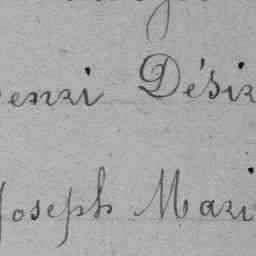 enri Dési
Joseph Mari